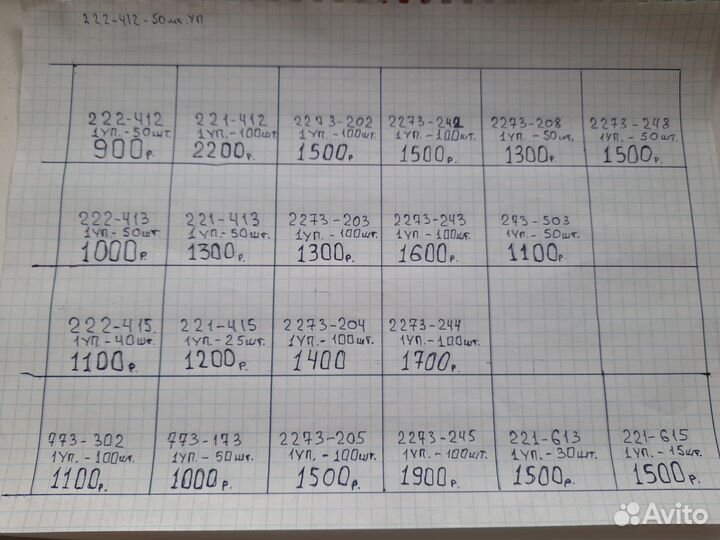 222-412-50шт.уп
222-412
1уп.-50шт
900р.
221-412
1уп.-100шт
2200р.
2273-202
1уп.-100шт.
1500р.
2273-242
1уп.-100шт.
1500р.
2273-208
1уп.-50шт.
1300р.
2273-248
1уп.-50шт.
1500р.
222-413
1уп.-50шт.
1000р.
221-413
1уп.-50шт.
1300р.
2273-203
1уп.-100шт.
1300р.
2273-243
1уп.-100шт.
1600р.
273-503
1уп.-50шт.
1100р.
222-415.
1уп-40шт.
1100р.
221-415
1уп-25шт.
1200р.
2273-204
1уп.-100шт.
1400
2273-244
1уп.-100шт.
1700р.
773-302
1уп.-100шт.
1100р.
773-173
1уп.-50шт.
1000р.
2273-205
1уп.-100шт.
1500р.
2273-245
1уп.-100шт.
1900р.
221-613
1уп.-30шт.
1500р.
221-615
1уп.-15шт.
1500р.
Avito